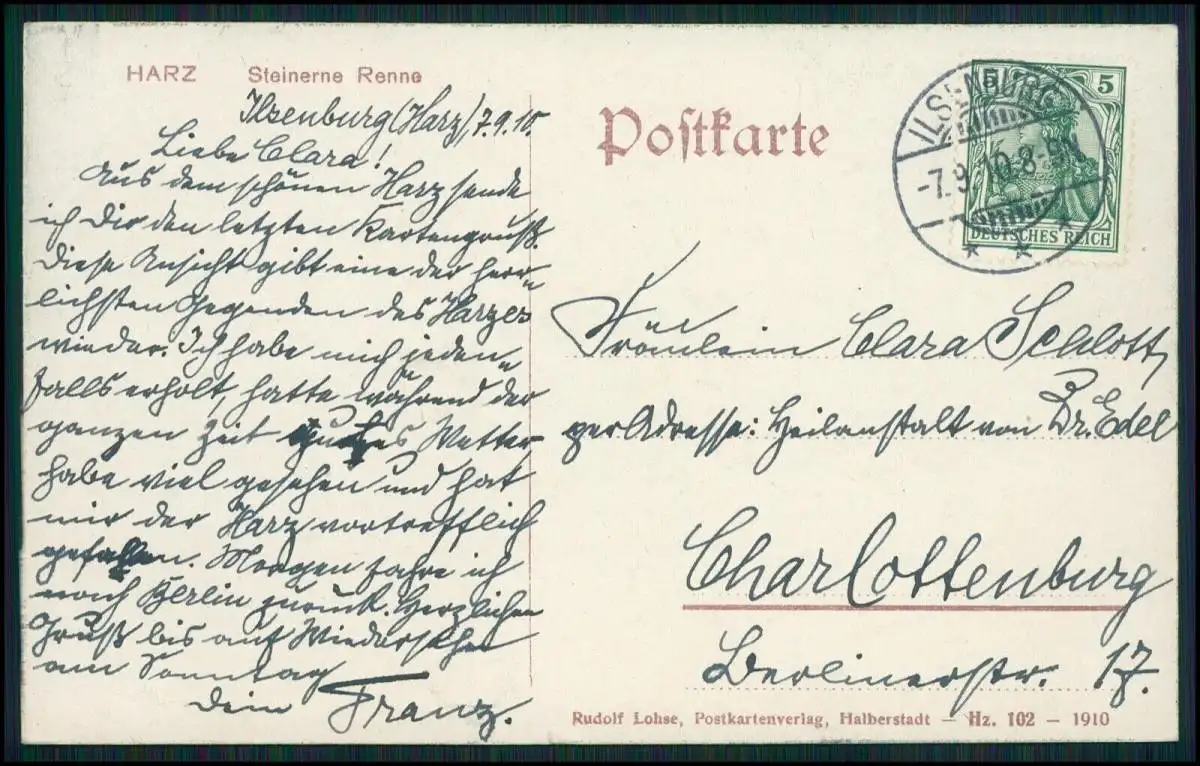 HARZ Steinerne Renne
Ilsenburg (Harz) 7.9.10.
Liebe Clara!
Aus dem schönen Harz sende
ich Dir den letzten Kartengruß.
Diese Ansicht gibt eine der herr-
lichsten Gegenden des Harzes
wieder. Ich habe mich jeden-
falls erholt, hatte während der
ganzen Zeit gutes Wetter
habe viel gesehen und hat
mir der Harz vortrefflich
gefallen. Morgen fahre ich
nach Berlin zurück. Herzlichen
Gruß bis auf Wiedersehen
am Sonntag
Dein Franz.
Postkarte
5 5
DEUTSCHES REICH
ILSENBURG
-7.9.10.8-9N
* * *
Fräulein Clara Schlott,
per Adresse: Heilanstalt von Dr. Edel
Charlottenburg
Berlinerstr. 17.
Rudolf Lohse, Postkartenverlag, Halberstadt – Hz. 102 – 1910